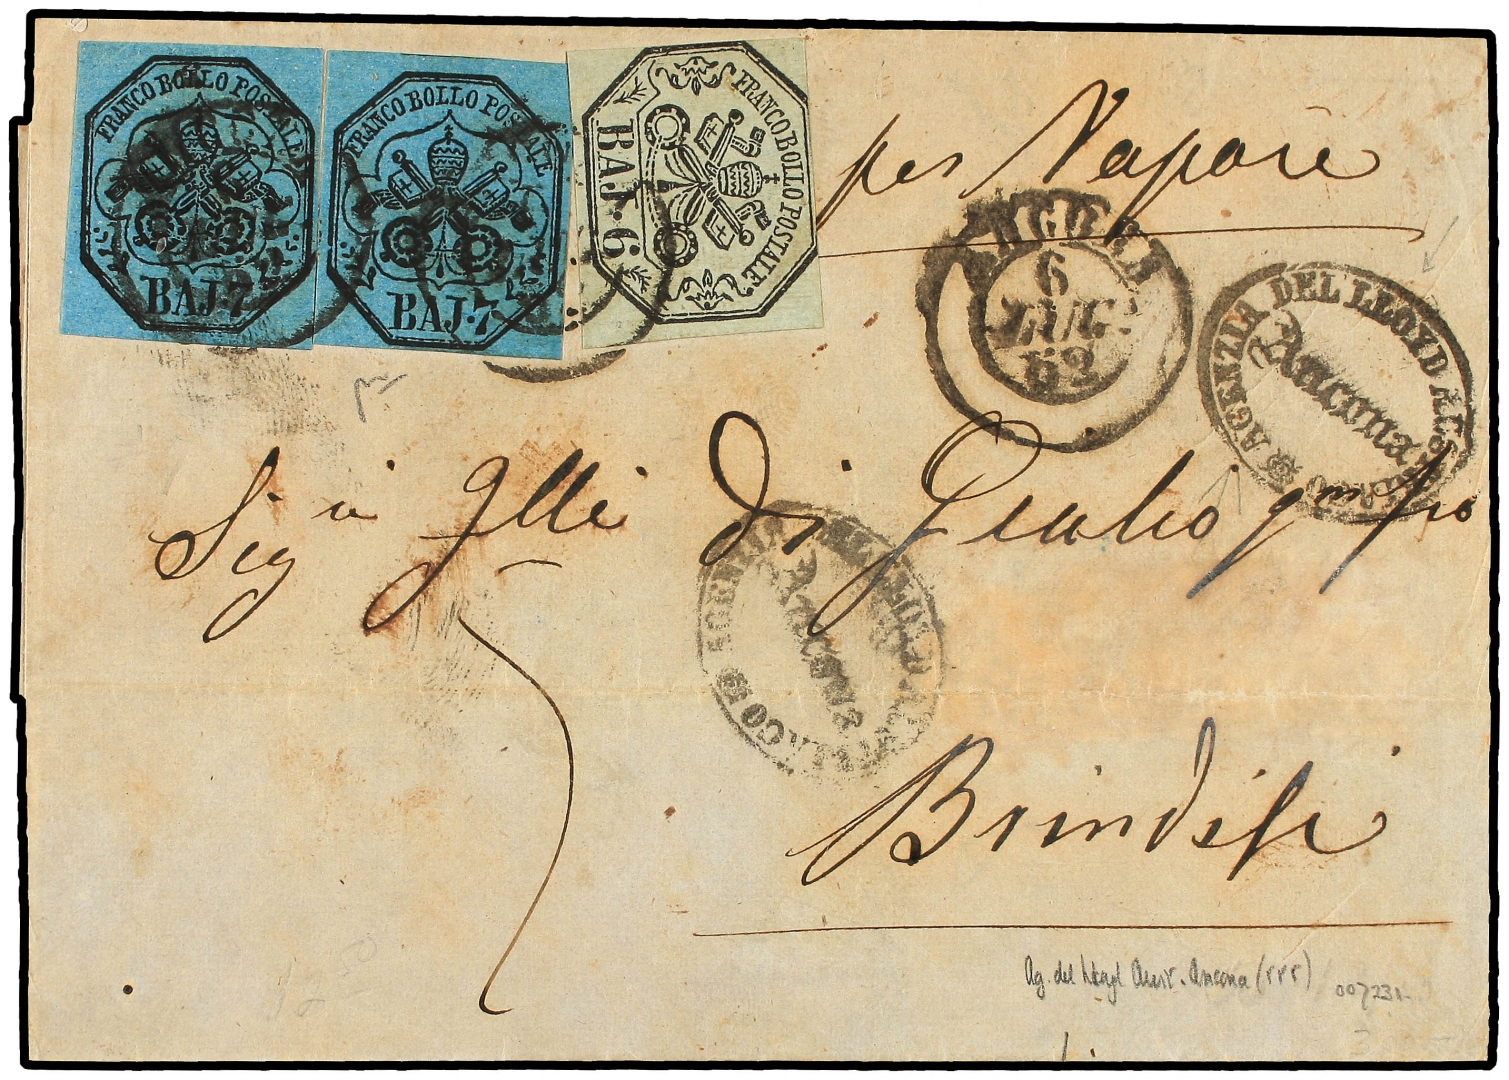 FRANCO BOLLO POSTALE
BAJ. 7
FRANCO BOLLO POSTALE
BAJ. 7
FRANCO BOLLO POSTALE
BAJ. 6
per Vapore
6
LUG.
52
AGENZIA DEL LLOYD AUSTRIACO
Ancona
Sig.ri flli Di Giulio qm
AGENZIA DEL LLOYD AUSTRIACO
Ancona
Brindisi
Ag. del Lloyd Austr. Ancona (rrr)
007231